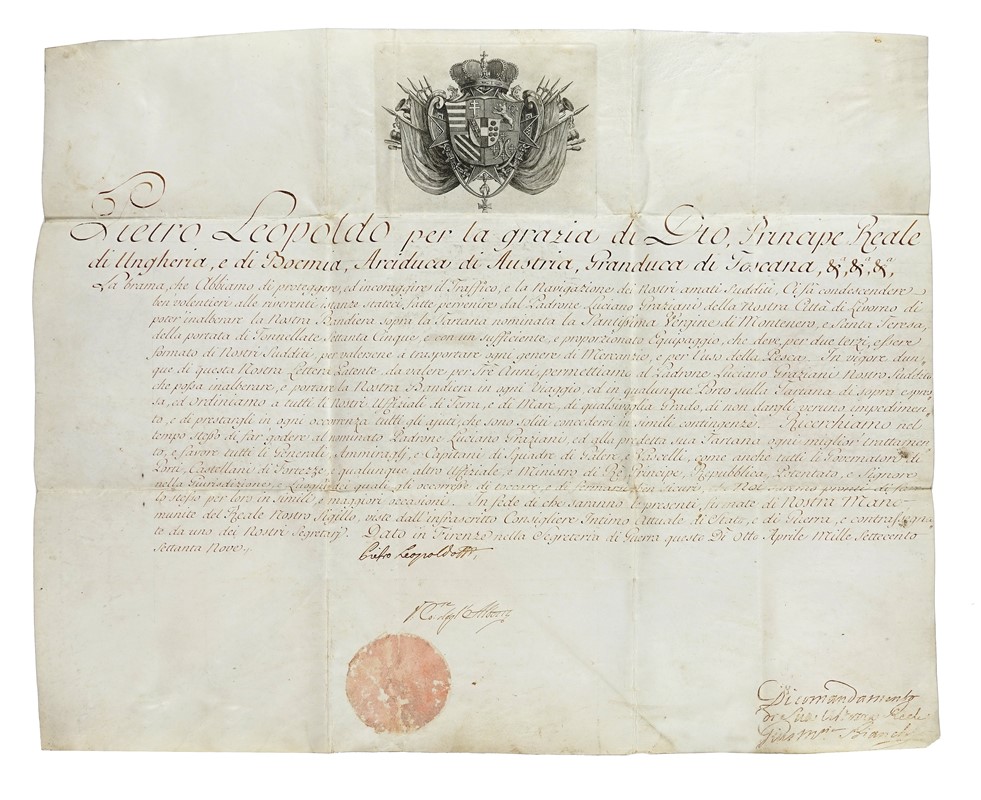 Pietro Leopoldo per la grazia di Dio, Principe Reale
di Ungheria, e di Boemia, Arciduca di Austria, Granduca di Toscana, &a, &a, &a,
La brama, che Abbiamo di proteggere, ed incoraggire il Traffico, e la Navigazione de' Nostri amati Sudditi Ci fà condescendere
ben volentieri alle riverenti istanze stateci fatte pervenire dal Padrone Luciano Graziani della Nostra Città di Livorno di
poter'inalberare la Nostra Bandiera sopra la Tartana nominata la Santissima Vergine di Montenero, e Santa Teresa,
della portata di Tonnellate Settanta Cinque, e con un sufficiente, e proporzionato Equipaggio, che deve per due terzi, essere
formato di Nostri Sudditi, per valersene a trasportare ogni genere di Mercanzie, e per l'uso della Pesca. In vigore dun,
que di questa Nostra Lettera Patente, da valere per Tre Anni, permettiamo al Padrone Luciano Graziani Nostro Suddito
che possa inalberare, e portare la Nostra Bandiera in ogni Viaggio, ed in qualunque Porto sulla Tartana di sopra espres,
sa, ed ordiniamo a tutti li Nostri Uffiziali di Terra, e di Mare, di qualsivoglia Grado, di non dargli veruno impedimen,
to, e di prestargli in ogni occorrenza tutti gli ajuti, che sono soliti concedersi in simili contingenze. Ricerchiamo nel
tempo stesso di far godere al nominato Padrone Luciano Graziani, ed alla predetta sua Tartana ogni miglior trattamen,
to, e favore tutti li Generali, Ammiragli, e Capitani di Squadre di Galere, e Vascelli, come anche tutti li Governatori di
Porti, Castellani di Fortezze, e qualunque altro Uffiziale, e Ministro di Rè, Principe, Repubblica, Potentato, e Signore
nella Giurisdizione, e Luoghi de' quali gli occorresse di toccare, e di fermarsi
lo stesso per loro in simili, e maggiori occasioni. In fede di che saranno le presenti firmate di Nostra Mano
munite del Reale Nostro Sigillo, viste dall'infrascritto Consigliere Intimo Attuale di Stato, e di Guerra, e contrassegna,
te da uno dei Nostri Segretarj. Dato in Firenze nella Segreteria di Guerra questo Dì Otto Aprile Mille Settecento
Settanta Nove.
Pietro Leopoldo
Di comandamento